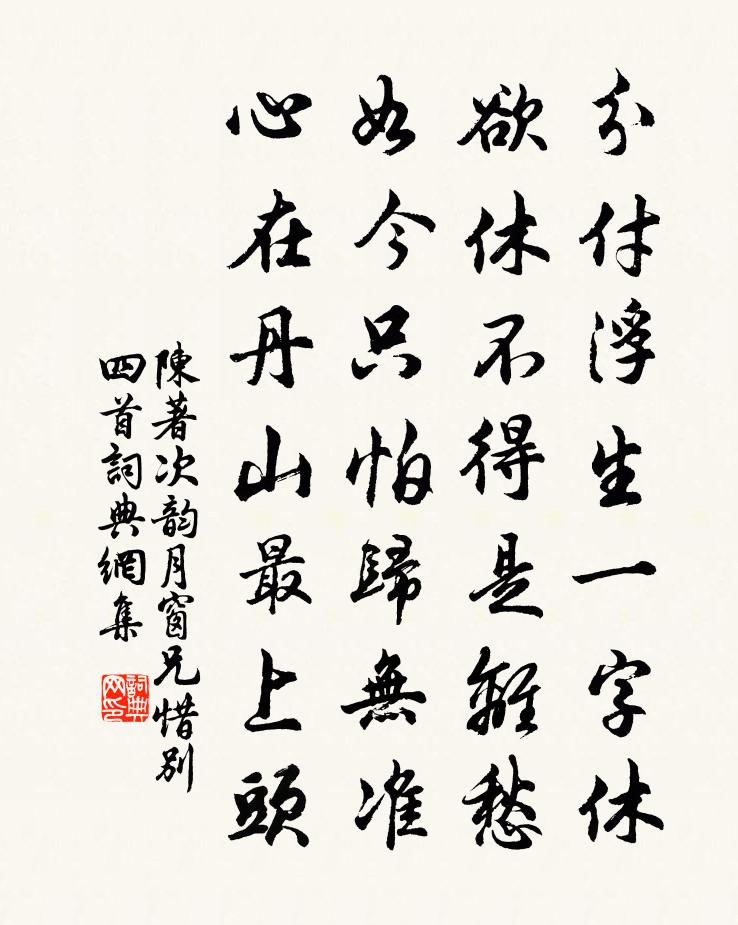 分付浮生一字休
欲休不得是離愁
如今只怕歸無准
心在丹山最上頭
陳著次韵月窗兄惜别
四首詞典網集
詞典网印